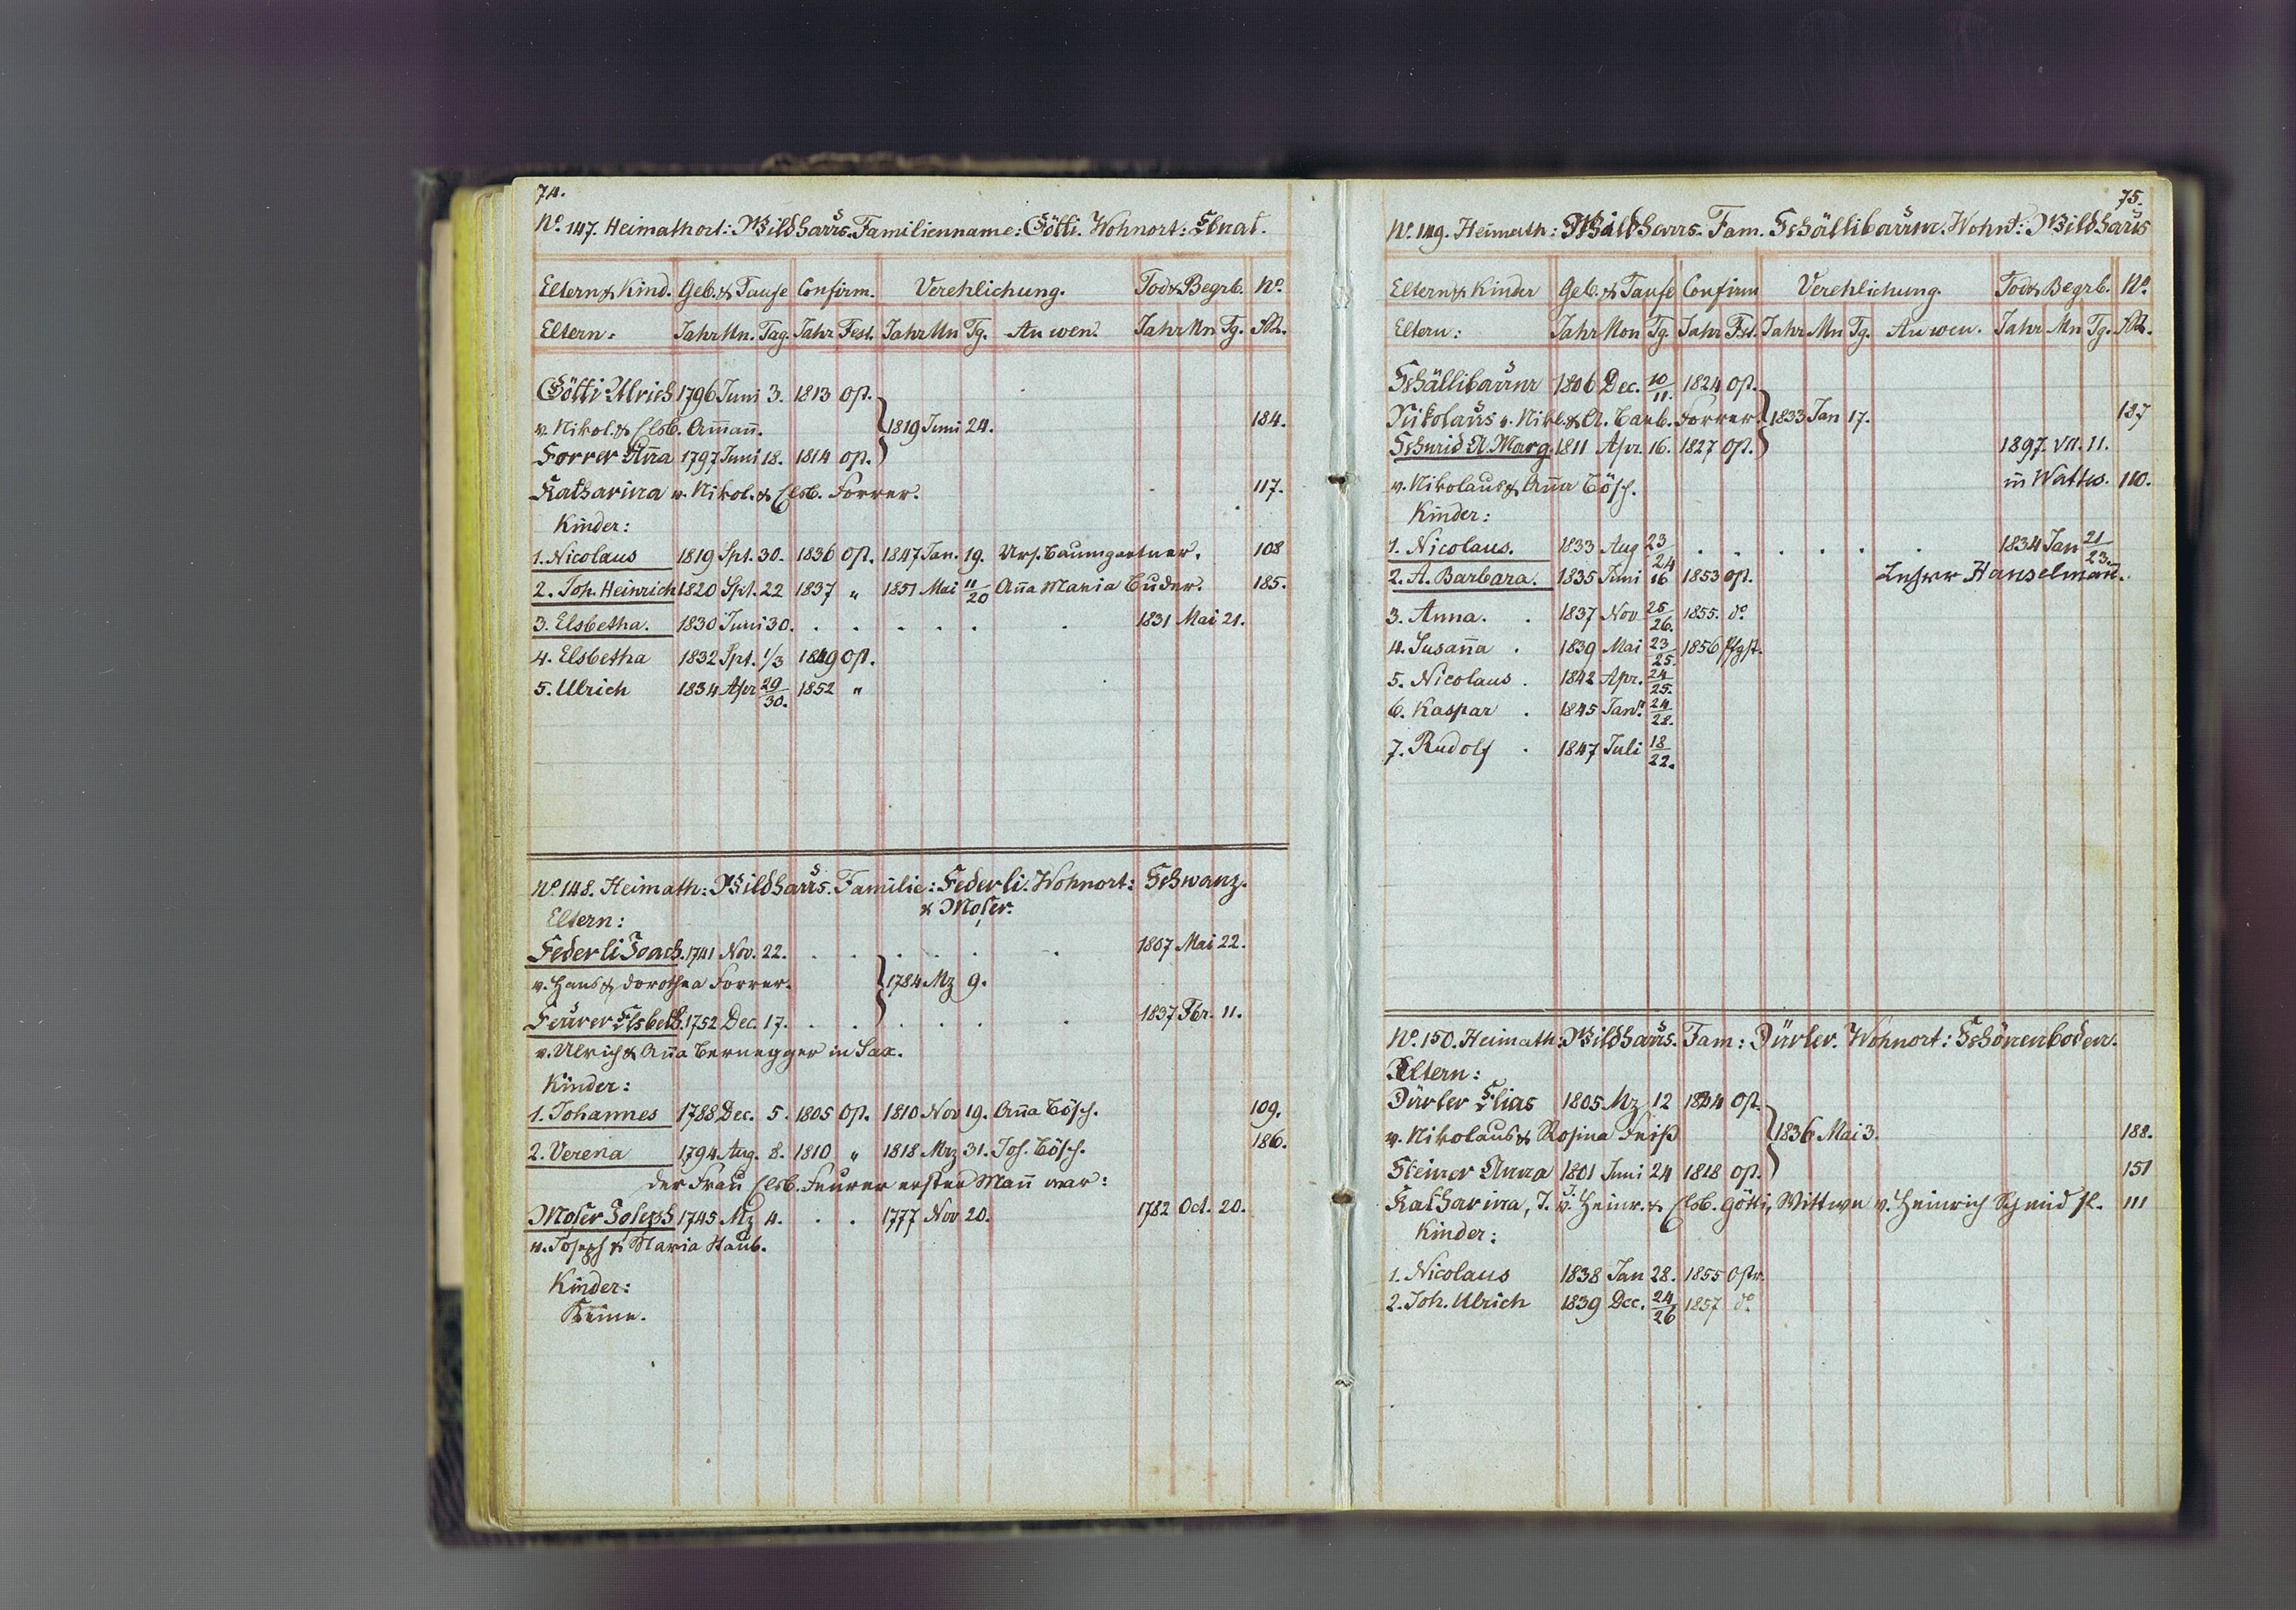 74.
No. 147. Heimathort: Wildhaus. Familienname: Götti. Wohnort: Ebnat.
Eltern & Kind. Geb. & Taufe Confirm. Verehlichung. Tod & Begrb. No.
Eltern: Jahr Mn. Tag. Jahr Fest. Jahr Mn Tg. An wen. Jahr Mn Tg.
Götti Ulrich 1796 Juni 3. 1813 Ost.
v. Nikol. & Elsb. Am̄an̄. 1819 Juni 24. 184.
Forrer An̄a 1797 Juni 18. 1814 Ost.
Katharina v. Nikol. & Elsb. Forrer. 117.
Kinder:
1. Nicolaus 1819 Spt. 30. 1836 Ost. 1847 Jan. 19. Urs. Baumgartner. 108
2. Joh. Heinrich 1820 Spt. 22 1837 " 1851 Mai 11/20 An̄a Maria Buder. 185.
3. Elsbetha. 1830 Juni 30. . . . . . . 1831 Mai 21.
4. Elsbetha 1832 Spt. 1/3 1849 Ost.
5. Ulrich 1834 Apr 29/30. 1852 "
No. 148. Heimath: Wildhaus. Familie: Federli. Wohnort: Schwanz.
& Moser.
Eltern:
Federli Joach. 1741 Nov. 22. . . . . . . 1807 Mai 22.
v. Hans & Dorothea Forrer. 1784 Mz 9.
Feurer Elsbeth. 1752 Dec. 17. . . . . . . 1837 Fbr. 11.
v. Ulrich & An̄a Bernegger in Sax.
Kinder:
1. Johannes 1788 Dec. 5. 1805 Ost. 1810 Nov 19. An̄a Bösch. 109.
2. Verena 1794 Aug. 8. 1810 " 1818 Mrz 31. Joh. Bösch. 186.
Der Frau Elsb. Feurer erster Man̄ war:
Moser Joseph 1745 Mz 4. . . 1777 Nov 20. 1782 Oct. 20.
v. Joseph & Maria Staub.
Kinder:
Keine.
75.
No. 149. Heimath: Wildhaus. Fam. Schällibaum. Wohnt: Wildhaus
Eltern & Kinder Geb. & Taufe Confirm Verehlichung Tod & Begrb. No.
Eltern: Jahr Mon Tg. Jahr Fst. Jahr Mn Tg. An wen. Jahr Mn Tg.
Schällibaum 1806 Dec. 10/11. 1824 Ost.
Nikolaus v. Nikl. & A. Barb. Forrer. 1833 Jan 17. 187
Schmid A. Marg. 1811 Apr. 16. 1827 Ost. 1897. VII. 11.
v. Nikolaus & An̄a Bösch. in Wattw. 110.
Kinder:
1. Nicolaus. 1833 Aug 23/24 . . . . . . 1834 Jan 21/23.
2. A. Barbara. 1835 Juni 16 1853 Ost. Lehrer Hanselman̄.
3. Anna. . 1837 Nov 25/26. 1855. do
4. Susan̄a . 1839 Mai 23/25. 1856 Pfgst.
5. Nicolaus . 1842 Apr. 24/25.
6. Kaspar . 1845 Janr. 24/28.
7. Rudolf . 1847 Juli 18/22.
No. 150. Heimath: Wildhaus. Fam: Dürler. Wohnort: Schönenboden.
Eltern:
Dürler Elias 1805 Mz 12 1824 Ost.
v. Nikolaus & Rosina Feiß 1836 Mai 3. 188.
Steiner Anna 1801 Juni 24 1818 Ost. 151
Katharina, T. v. Heinr. & Elsb. Götti, Wittwe v. Heinrich Schmid sl. 111
Kinder:
1. Nicolaus 1838 Jan 28. 1855 Ostr.
2. Joh. Ulrich 1839 Dec. 24/26 1857 do